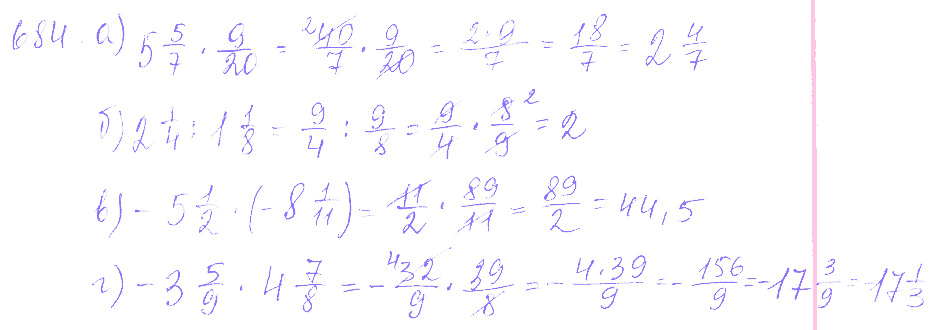 684. а) 5 5/7 · 9/20 = ²40/7 · 9/20 = 2·9/7 = 18/7 = 2 4/7
б) 2 1/4 : 1 1/8 = 9/4 : 9/8 = 9/4 · 8/9 ² = 2
в) - 5 1/2 · (- 8 1/11) = 11/2 · 89/11 = 89/2 = 44,5
г) - 3 5/9 · 4 7/8 = - ⁴32/9 · 39/8 = - 4·39/9 = - 156/9 = -17 3/9 = -17 1/3